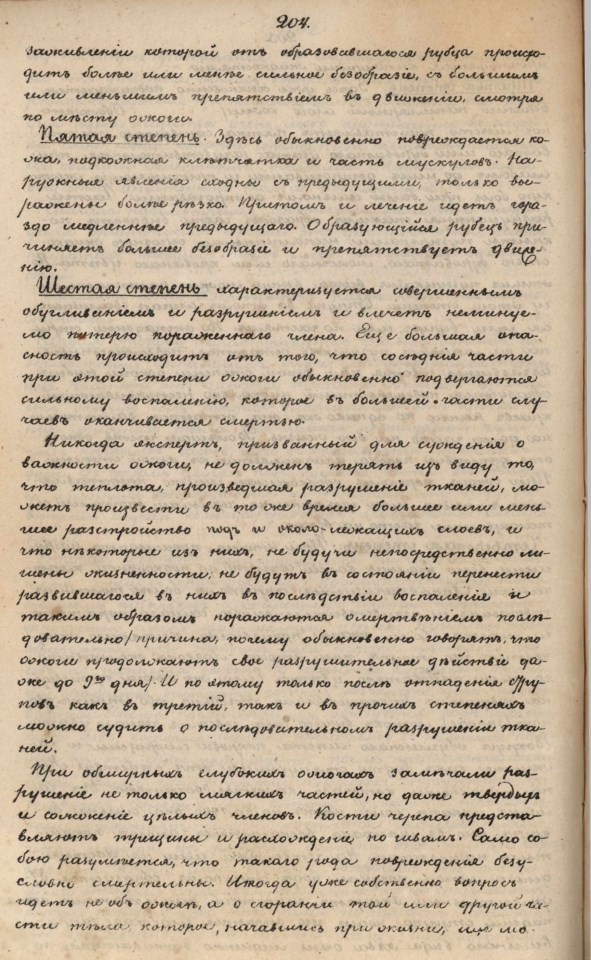 204.
заживленіи которой отъ образовавшагося рубца происхо-
дитъ болѣе или менѣе сильное безобразіе, съ большимъ
или меньшимъ препятствіемъ въ движеніи, смотря
по мѣсту ожоги.
Пятая степень. Здѣсь обыкновенно повреждается ко-
жа, подкожная клѣтчатка и часть мускуловъ. На-
ружныя явленія сходны съ предыдущими, только вы-
ражены болѣе рѣзко. Притомъ и леченіе идетъ гора-
здо медленнѣе предыдущаго. Образующійся рубецъ при-
чиняетъ большее безобразіе и препятствуетъ движе-
нію.
Шестая степень характеризуется совершеннымъ
обугливаніемъ и разрушеніемъ и влечетъ неминуе-
мо потерю пораженнаго члена. Еще большая опа-
сность происходитъ отъ того, что сосѣднія части
при этой степени ожоги обыкновенно подвергаются
сильному воспаленію, которое въ большей части слу-
чаевъ оканчивается смертью.
Никогда экспертъ, призванный для сужденія о
важности ожоги, не долженъ терять изъ виду то,
что теплота, произведшая разрушеніе тканей, мо-
жетъ произвести въ то же время большее или мень-
шее разстройство подъ и около-лежащихъ слоевъ, и
что нѣкоторые изъ нихъ, не будучи непосредственно ли-
шены жизненности, не будутъ въ состояніи перенести
развившагося въ нихъ въ послѣдствіи воспаленія и
такимъ образомъ поражаются омертвѣніемъ послѣ-
довательно/причина, почему обыкновенно говорятъ, что
ожоги продолжаютъ свое разрушительное дѣйствіе да-
же до 9го дня/. И по этому только послѣ отпаденія стру-
повъ какъ въ третій, такъ и въ прочихъ степеняхъ
можно судить о послѣдовательномъ разрушеніи тка-
ней.
При обширныхъ глубокихъ ожогахъ замѣчали раз-
рушеніе не только мягкихъ частей, но даже твердыхъ
и сожженіе цѣлыхъ членовъ. Кости черепа предста-
вляютъ трещины и расхожденіе по швамъ. Само со-
бою разумѣется, что такаго рода поврежденія безу-
словно смертельны. Иногда уже собственно вопросъ
идетъ не объ ожогѣ, а о сгораніи той или другой ча-
сти тѣла которое, начавшись при жизни, еще мо-